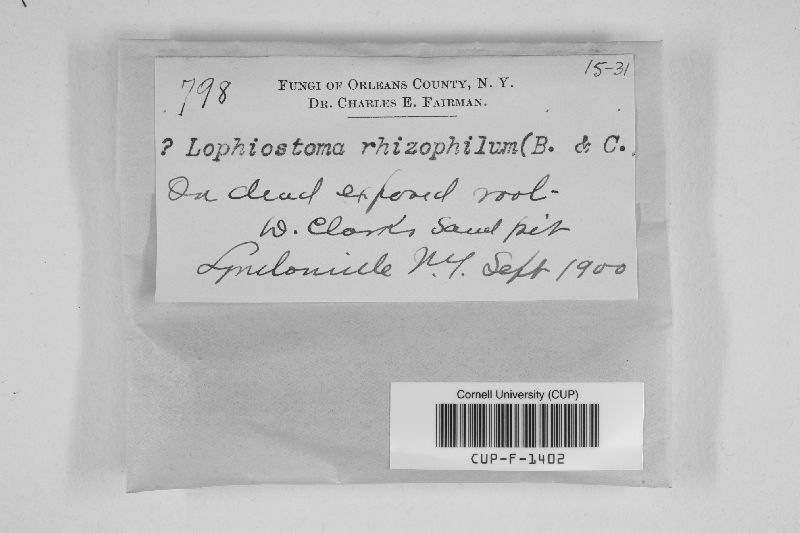 15-31
798
FUNGI OF ORLEANS COUNTY, N. Y.
DR. CHARLES E. FAIRMAN.
? Lophiostoma rhizophilum(B. & C.
On dead exposed root-
W. Clarks Sand pit
Lyndonville N.Y. Sept 1900
Cornell University (CUP)
CUP-F-1402